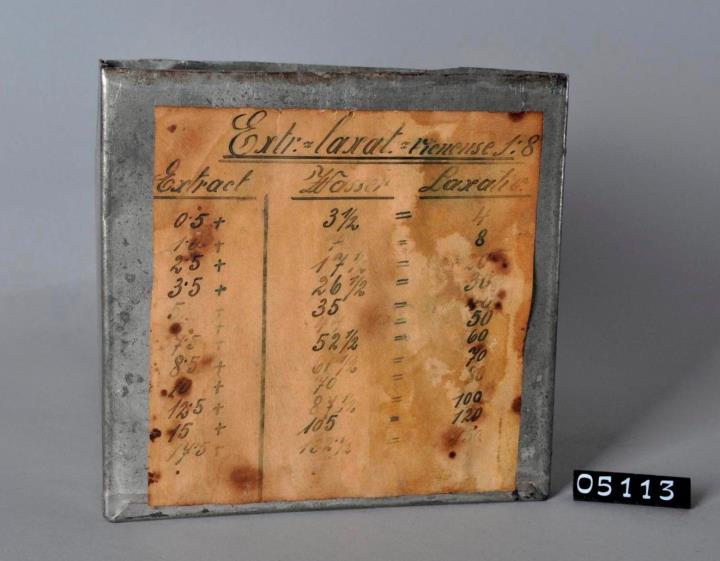 Extr. = laxat. = vienense 1:8
Extract Wasser Laxativ.
0·5 + 3 1/2 = 4
1·0 + 7 = 8
2·5 + 17 1/2 = 20
3·5 + 26 1/2 = 30
5 35 = 40
= 50
7·5 52 1/2 = 60
8·5 + 61 1/2 = 70
10 + 70 = 80
12·5 + 87 1/2 = 100
15 + 105 = 120
17·5 - 132 1/2 =
05113